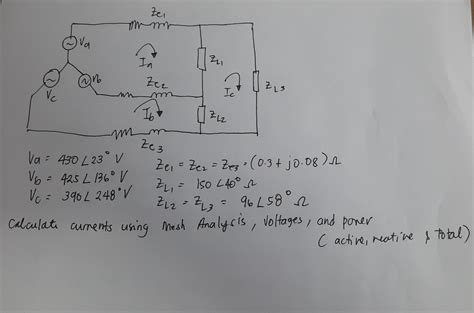 Ze1
Va
Ia
ZL1
Vb
Ze2
Ic
ZL3
Vc
Ib
ZL2
Ze3
Va = 430∠23° V
Vb = 425∠136° V
Vc = 390∠248° V
Ze1 = Ze2 = Ze3 = (0.3 + j0.08) Ω
ZL1 = 150∠40° Ω
ZL2 = ZL3 = 96∠58° Ω
Calculate currents using Mesh Analysis, voltages, and power
(active, reactive & total)